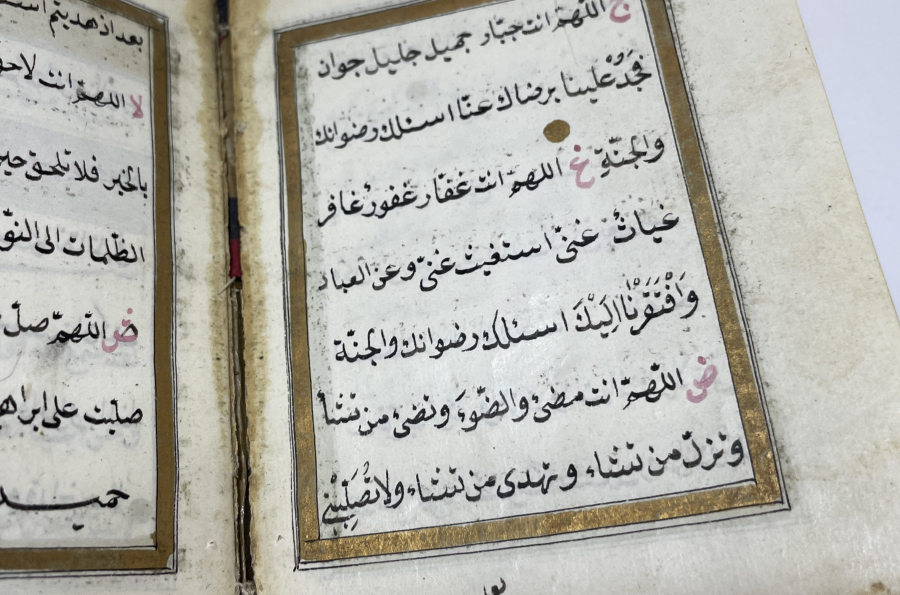 ج اللهم انت جبّار جميل جليل جوان
فَجُدْ علينا برضاك عنّا اسئلك رضوانك
والجنّة غ اللهمّ انت غفّار غفور غافر
غياث غنىّ استغيث غنىّ وعن العباد
وَافْتَقَرْنَا اِلَيْكَ اسئلك رضوانك والجنّة
ض اللهمّ انت مضئ والضّوءَ ونضئ من تشاء
ونزلّ من تشاء ونهدى من تشاء ولا تُصَلِّيْنِى
بعد اذ هديتم
لا اللهمّ انت لاحق
بالخير فلا تلحق
الظّلمات الى النّو
ض اللهمّ صلّ
صلّيت على ابراهي
حميد